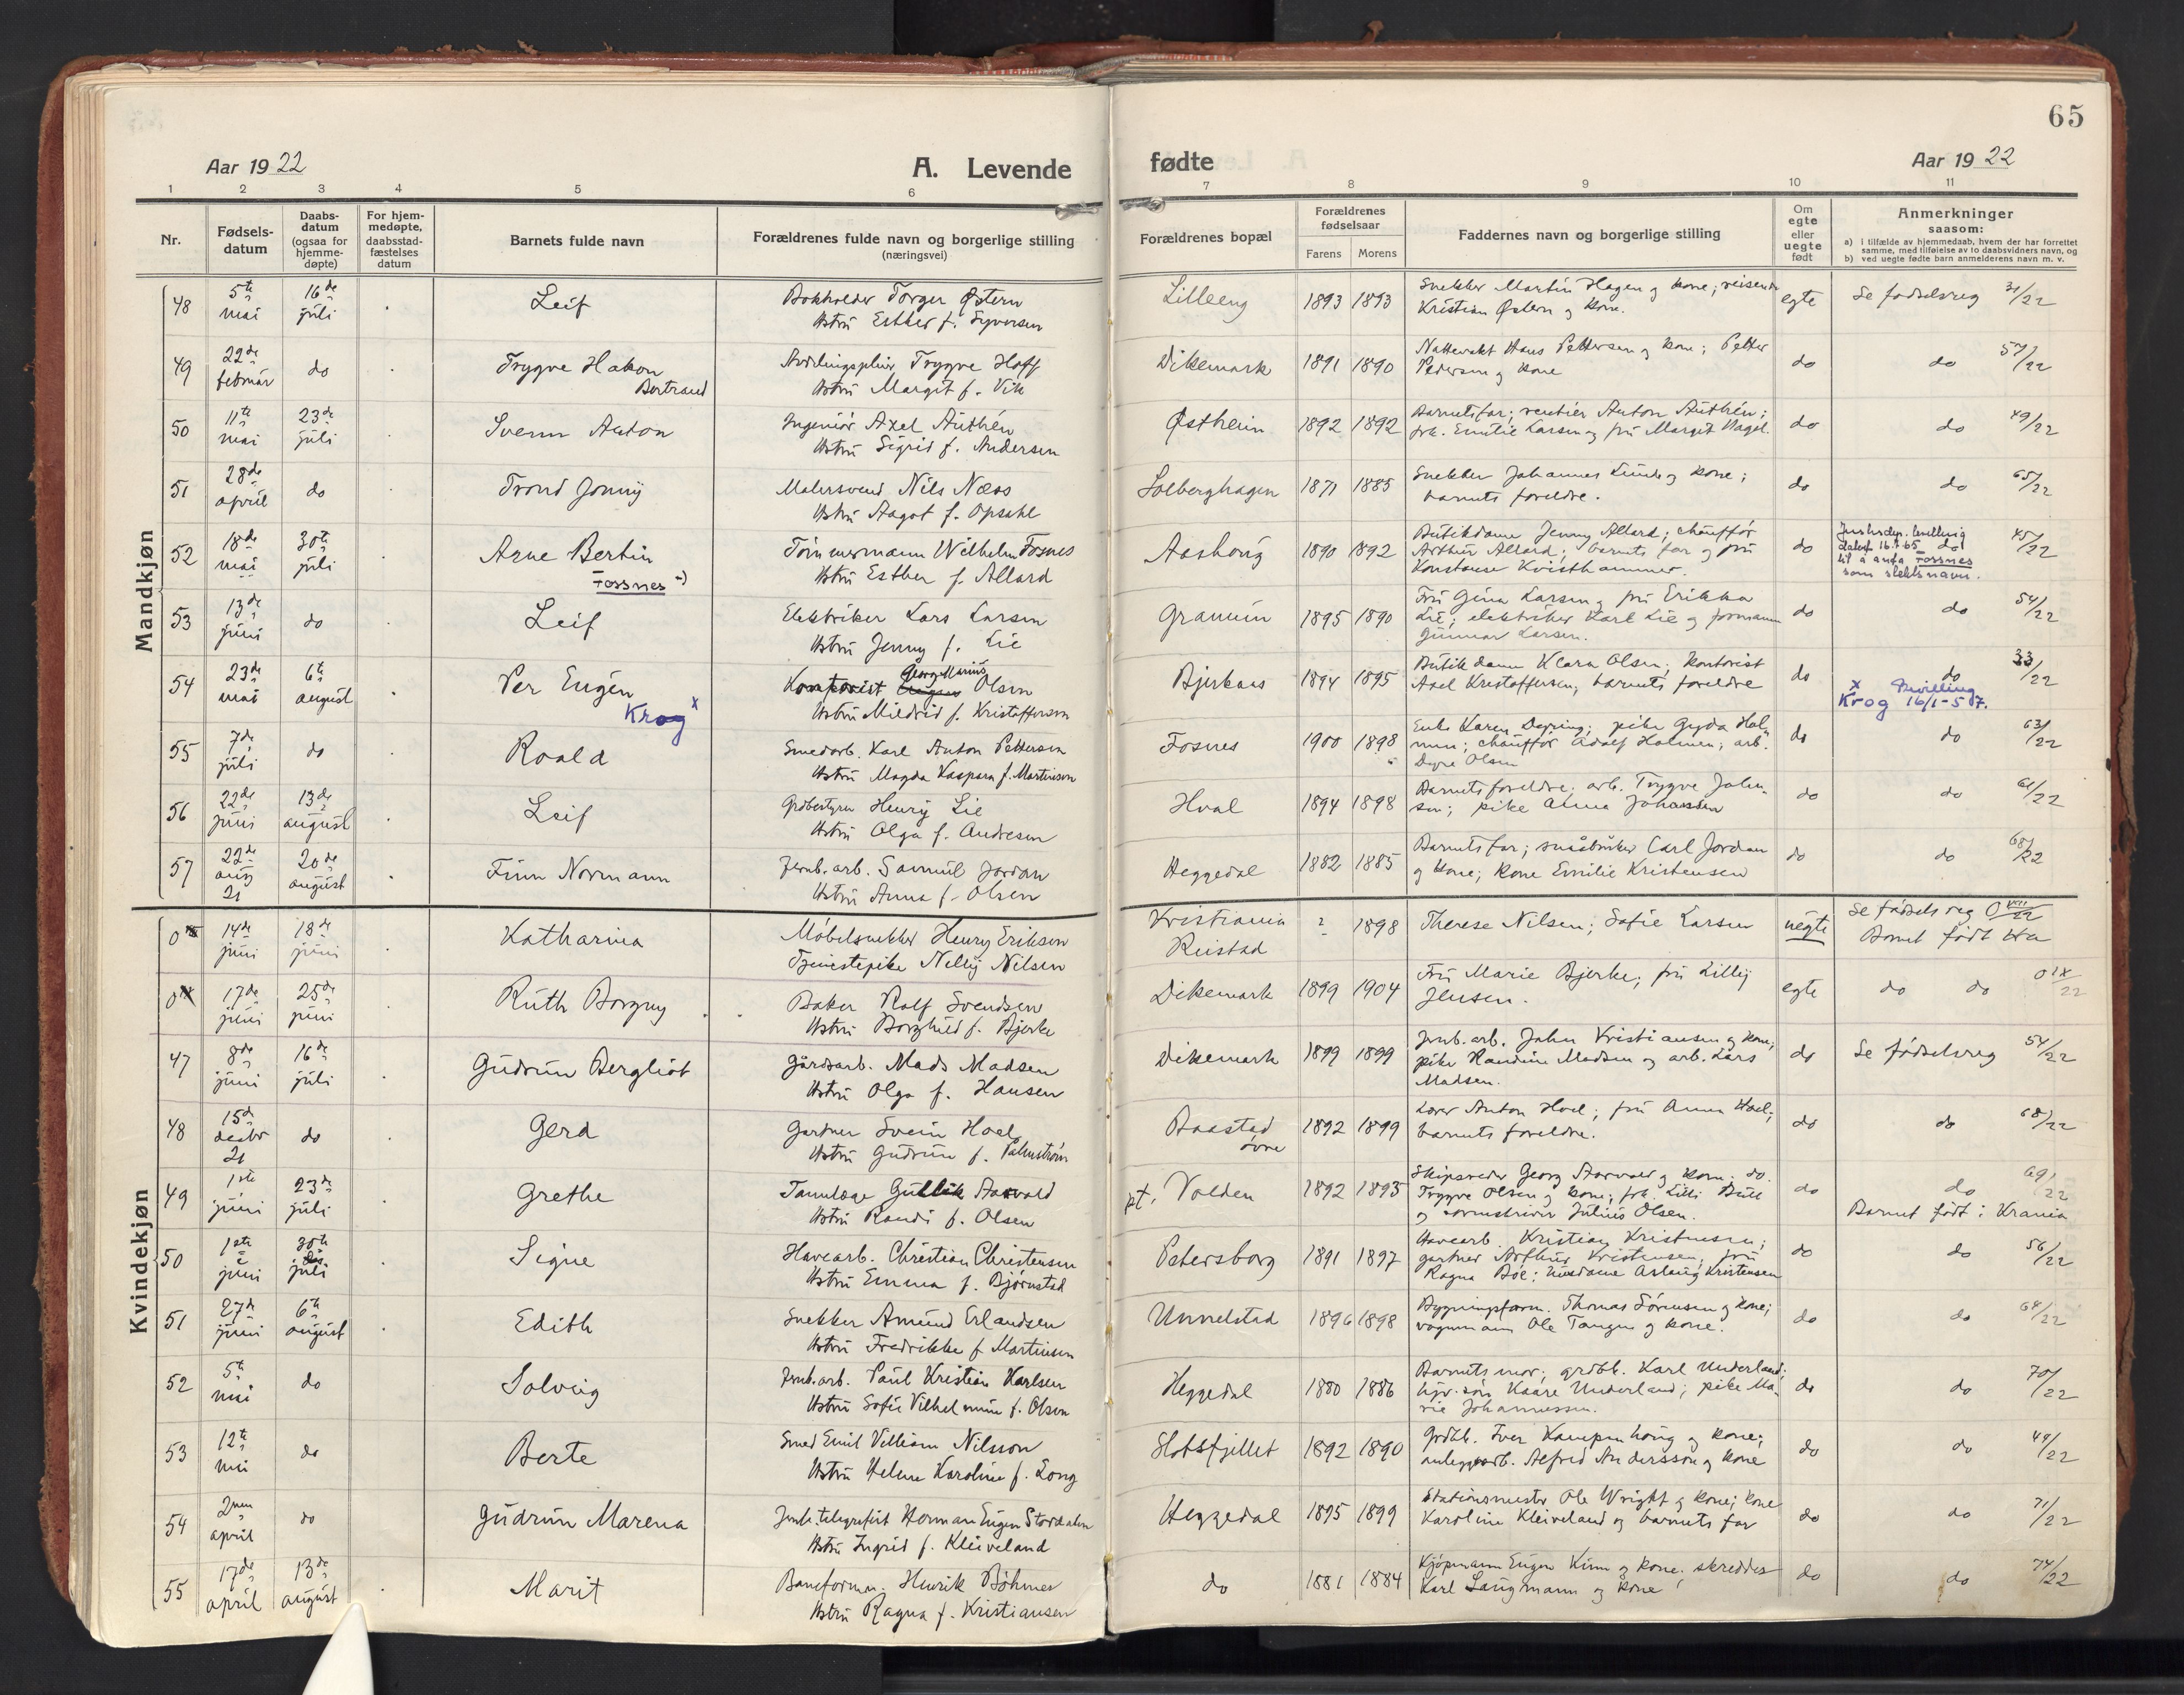 65
Aar 1922
A. Levende fødte
Aar 1922
1 2 3 4 5 6 7 8 9 10 11
Nr.
Fødsels-
datum
Daabs-
datum
(ogsaa for
hjemme-
døpte)
For hjem-
medøpte,
daabsstad-
fæstelses
datum
Barnets fulde navn
Forældrenes fulde navn og borgerlige stilling
(næringsvei)
Forældrenes bopæl
Forældrenes
fødselsaar
Farens Morens
Faddernes navn og borgerlige stilling
Om
egte
eller
uegte
født
Anmerkninger
saasom:
a) i tilfælde av hjemmedaab, hvem der har forrettet
samme, med tilføielse av to daabsvidners navn, og
b) ved uegte fødte barn anmelderens navn m. v.
Mandkjøn
48 5te mai 16de juli Leif Bokholder Torger Østern
Hstru Esther f. Syversen
Lilleeng 1893 1893 Snekker Martin Hagen og kone; reisende
Kristian Østern og kone.
egte Se fødselsreg 31/22
49 22de februar do Trygve Hakon
Bertrand
Avdelingspleier Trygve Hoff
Hstru Margit f. Vik
Dikemark 1891 1890 Nattevakt Hans Pettersen og kone; Petter
Pedersen og kone
do do 57/22
50 11te mai 23de juli Svenn Anton Ingeniør Axel Authén
Hstru Sigrid f. Andersen
Østheim 1892 1892 Barnets far; rentier Anton Authén;
frk. Emilie Larsen og fru Margit Nagel.
do do 49/22
51 28de april do Trond Jonny Malersvend Nils Næss
Hstru Aagot f. Opsahl
Solberghagen 1871 1885 Snekker Johannes Lund og kone;
barnets foreldre.
do do 65/22
52 18de mai 30te juli Arne Bertin
Fossnes
Tømmermann Wilhelm Fosnes
Hstru Esther f. Allard
Aashoug 1890 1892 Butikdame Jenny Allard; chauffør
Arthur Allard; barnets far og fru
Konstanse Kvisthammer.
do do 45/22
Justisdep. bevilling
datert 16.-65
til å anta Fossnes
som slektsnavn.
53 13de juni do Leif Elektriker Lars Larsen
Hstru Jenny f. Lie
Granum 1895 1890 Fru Gina Larsen og fru Erikka
Lie; elektriker Karl Lie og formann
Gunnar Larsen.
do do 54/22
54 23de mai 6te august Per Eugén
Krog x
Kontorist Georg Marius Olsen
Hstru Mildrid f. Kristoffersen
Bjerkaas 1894 1895 Butikdame Klara Olsen; kontorist
Axel Kristoffersen; barnets foreldre
do do 33/22
x Bevilling
Krog 16/1-57.
55 7de juli do Roald Smedarb. Karl Anton Pettersen
Hstru Magda Kaspara f. Martinsen
Fosnes 1900 1898 Enke Karen Dyring; pike Gyda Hol-
men; chauffør Adolf Holmen; arb.
Dyre Olsen
do do 63/22
56 22de juni 13de august Leif Grdbestyrer Henry Lie
Hstru Olga f. Andresen
Hval 1894 1898 Barnets foreldre; arb. Trygve Johan-
sen; pike Anna Johansen
do do 61/22
57 22de aug 21 20de august Finn Normann Jernb.arb. Samuel Jordan
Hstru Anna f. Olsen
Heggedal 1882 1885 Barnets far; småbruker Carl Jordan
og kone; kone Emilie Kristensen
do do 68/22
Kvindekjøn
0 14de juni 18de juni Katharina Møbelsnekker Henry Eriksen
Tjenestepike Nelly Nilsen
Kristiania
Rustad
? 1898 Therese Nilsen; Sofie Larsen
uegte Se fødselsreg 0 VIII/22
Barnet født
0 IX 17de juni 25de juni Ruth Borgny Baker Rolf Svendsen
Hstru Borghild f. Bjerke
Dikemark 1899 1904 Fru Marie Bjerke; fru Lilly
Jensen.
egte do do 0 IX/22
47 8de juni 16de juli Gudrun Bergliot Gårdsarb. Mads Madsen
Hstru Olga f. Hansen
Dikemark 1899 1899 Jernb.arb. John Kristiansen og kone;
pike Randine Madsen og arb. Lars
Madsen.
do Se fødselsreg 54/22
48 15de decbr 21 do Gerd Gartner Svein Hoel
Hstru Gudrun f. Palmstrøm
Baastad
øvre
1892 1899 Lærer Anton Hoel; fru Anna Hoel;
barnets foreldre.
do do 68/22
49 1ste juni 23de juli Grethe Tannlæge Gullik Aarvold
Hstru Randi f. Olsen
pt. Volden 1892 1893 Skipsreder Georg Aarvold og kone; do.
Trygve Olsen og kone; frk. Lilli Bull
og sorenskriver Julius Olsen.
do do 69/22
Barnet født i Krania
50 1ste juni 30te juli Signe Havearb. Christian Christensen
Hstru Emma f. Bjørnstad
Petersborg 1891 1897 Havearb. Kristian Kristensen;
gartner Arthur Kristensen; fru
Ragna Böe; husdame Aslaug Kristensen
do do 56/22
51 27de juni 6te august Edith Snekker Amund Erlandsen
Hstru Fredrikke f. Martinsen
Unnelstad 1896 1898 Bygningsform. Thomas Sørensen og kone;
vognmann Ole Tangen og kone.
do do 64/22
52 5te mai do Solveig Jernb.arb. Paul Kristian Karlsen
Hstru Sofie Vilhelmine f. Olsen
Heggedal 1880 1886 Barnets mor; grdbr. Karl Underland;
hjv. søn Kaare Underland; pike Ma-
rie Johannessen.
do do 70/22
53 12te mai do Berte Smed Emil Villiam Nilsson
Hstru Helene Karoline f. Long
Slotsfjellet 1892 1890 Grdbr. Iver Kampenhoug og kone;
anleggsarb. Alfred Andersson og kone
do do 48/22
54 2nen april do Gudrun Marena Jernb.telegrafist Herman Eugen Stordalen
Hstru Ingrid f. Kleiveland
Heggedal 1895 1899 Stationsmester Ole Wright og kone; kone
Karoline Kleiveland og barnets far
do do 71/22
55 17de april 13de august Marit Baneformann Henrik Böhmer
Hstru Ragna f. Kristiansen
do 1881 1884 Kjøpmann Eugen Kinn og kone; skredder
Karl Langmann og kone
do do 74/22